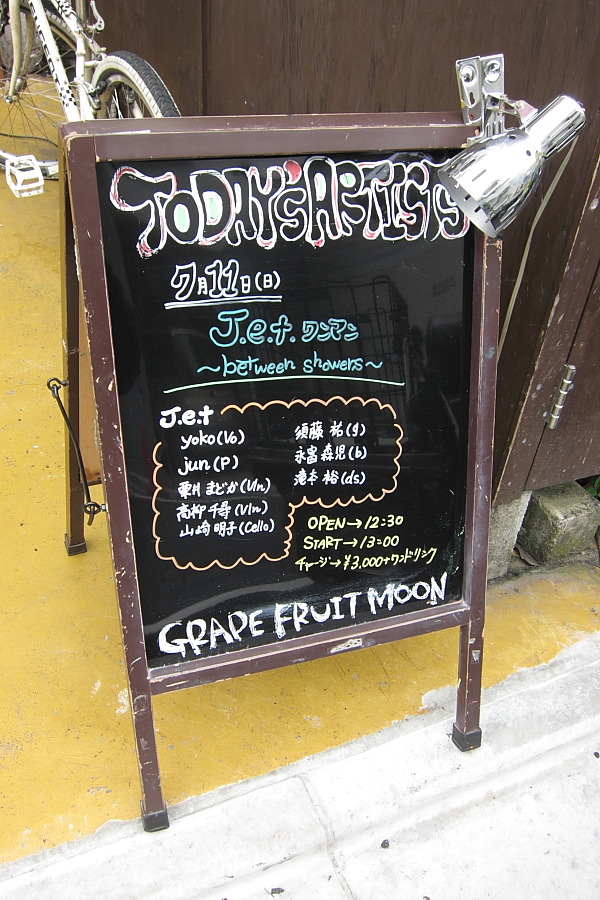 TODAY'S ARTISTS
7月11日(日)
J.e.t. ワンマン
～between showers～
J.e.t
yoko(Vo)
jun(P)
栗林 まどか(Vln)
高柳 千尋(Vln)
山崎 明子(Cello)
須藤 祐(g)
永富 森児(b)
滝本 裕(ds)
OPEN→12:30
START→13:00
チャージ→¥3,000+ワンドリンク
GRAPE FRUIT MOON